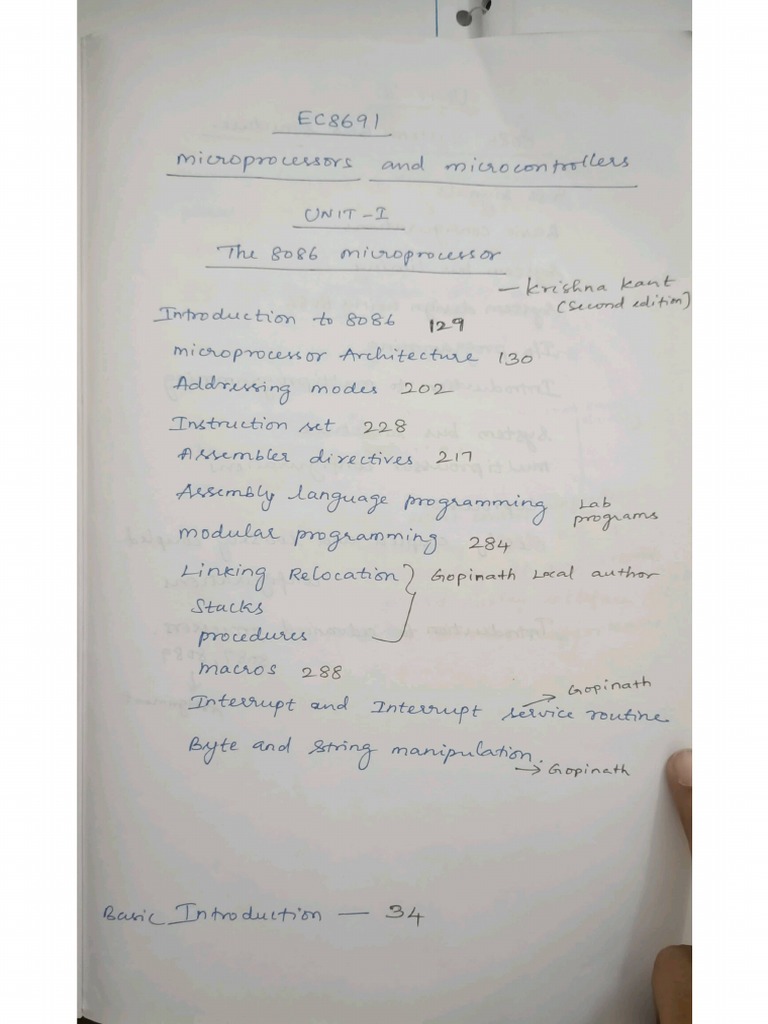 EC8691
microprocessors and microcontrollers
UNIT-I
The 8086 microprocessor
- Krishna Kant
(Second edition)
Introduction to 8086 129
microprocessor Architecture 130
Addressing modes 202
Instruction set 228
Assembler directives 217
Assembly language programming Lab programs
modular programming 284
Linking Relocation } Gopinath Local author
Stacks
procedures
macros 288
Interrupt and Interrupt service routine → Gopinath
Byte and string manipulation.
→ Gopinath
Basic Introduction — 34